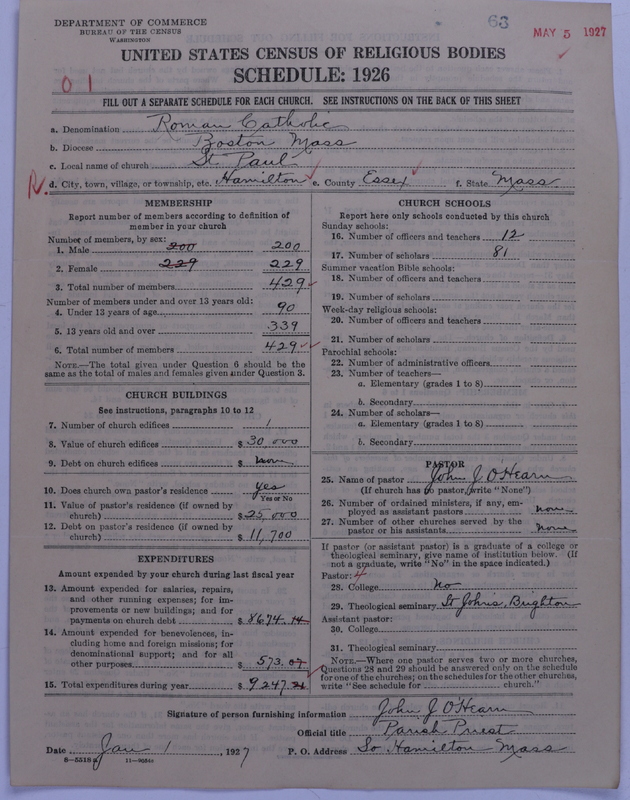 DEPARTMENT OF COMMERCE
BUREAU OF THE CENSUS
WASHINGTON
63
MAY 5 1927
UNITED STATES CENSUS OF RELIGIOUS BODIES
SCHEDULE: 1926
0 1
FILL OUT A SEPARATE SCHEDULE FOR EACH CHURCH. SEE INSTRUCTIONS ON THE BACK OF THIS SHEET
a. Denomination Roman Catholic
b. Diocese Boston Mass
c. Local name of church St. Paul
N. d. City, town, village, or township, etc. Hamilton e. County Essex f. State Mass
MEMBERSHIP
Report number of members according to definition of
member in your church
Number of members, by sex:
1. Male 200 200
2. Female 229 229
3. Total number of members 429
Number of members under and over 13 years old:
4. Under 13 years of age 90
5. 13 years old and over 339
6. Total number of members 429
NOTE.—The total given under Question 6 should be
same as the total of males and females given under Question 3.
CHURCH BUILDINGS
See instructions, paragraphs 10 to 12
7. Number of church edifices 1
8. Value of church edifices $ 30,000
9. Debt on church edifices $ none
10. Does church own pastor's residence yes
Yes or No
11. Value of pastor's residence (if owned by
church) $ 25,000
12. Debt on pastor's residence (if owned by
church) $ 11,700
EXPENDITURES
Amount expended by your church during last fiscal year
13. Amount expended for salaries, repairs,
and other running expenses; for im-
provements or new buildings; and for
payments on church debt $ 8674.14
14. Amount expended for benevolences, in-
cluding home and foreign missions; for
denominational support; and for all
other purposes $ 573.07
15. Total expenditures during year $ 9247.21
CHURCH SCHOOLS
Report here only schools conducted by this church
Sunday schools:
16. Number of officers and teachers 12
17. Number of scholars 81
Summer vacation Bible schools:
18. Number of officers and teachers
19. Number of scholars
Week-day religious schools:
20. Number of officers and teachers
21. Number of scholars
Parochial schools:
22. Number of administrative officers
23. Number of teachers—
a. Elementary (grades 1 to 8)
b. Secondary
24. Number of scholars—
a. Elementary (grades 1 to 8)
b. Secondary
PASTOR
25. Name of pastor John J O'Hearn
(If church has no pastor, write "None")
26. Number of ordained ministers, if any, em-
ployed as assistant pastors none
27. Number of other churches served by the
pastor or his assistants none
If pastor (or assistant pastor) is a graduate of a college or
theological seminary, give name of institution below. (If
not a graduate, write "No" in the space indicated.)
Pastor: 4
28. College No
29. Theological seminary St Johns, Brighton
Assistant pastor:
30. College
31. Theological seminary
NOTE.—Where one pastor serves two or more churches,
Questions 28 and 29 should be answered only on the schedule
for one of the churches; on the schedules for the other churches,
write "See schedule for church."
Signature of person furnishing information John J O'Hearn
Official title Parish Priest
Date Jan 1, 1927 P. O. Address So Hamilton Mass